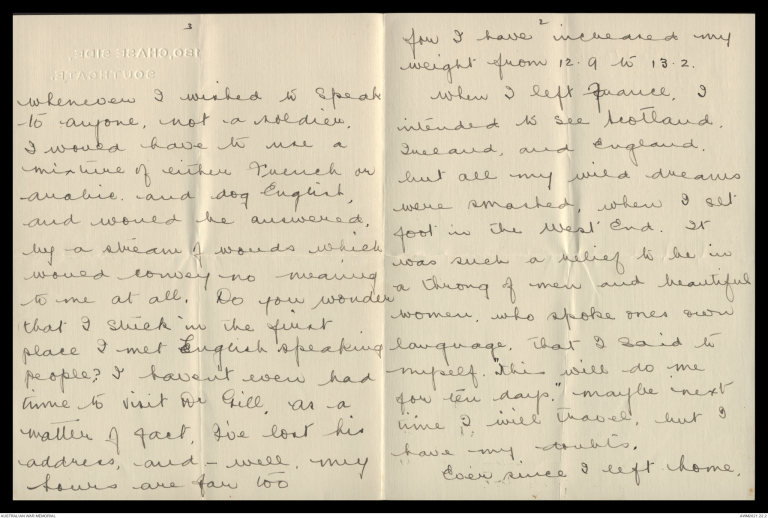 2
for I have increased my
weight from 12.9 to 13.2.
When I left France, I
intended to see Scotland,
Ireland, and England.
but all my wild dreams
were smashed, when I set
foot in the West End. It
was such a relief to be in
a throng of men and beautiful
women, who spoke ones own
language, that I said to
myself. "This will do me
for ten days." maybe next
time I will travel, but I
have my doubts.
Ever since I left home,
3
180, CHASE SIDE,
SOUTHGATE.
whenever I wished to speak
to anyone, not a soldier,
I would have to use a
mixture of either French or
arabic. and dog English,
and would be answered,
by a stream of words which
would convey no meaning
to me at all. Do you wonder
that I stuck in the first
place I met English speaking
people? I havent even had
time to visit Dr Gill, as a
matter of fact, I've lost his
address, and - well, my
hours are far too
AUSTRALIAN WAR MEMORIAL